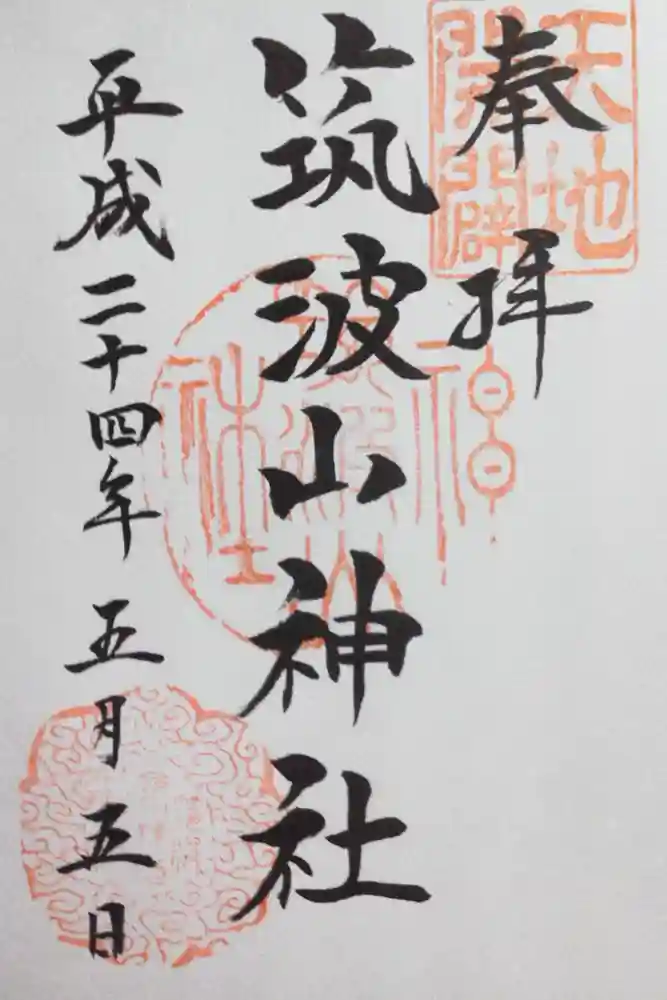 奉拝
天地
開闢
筑波山神社
平成二十四年五月五日